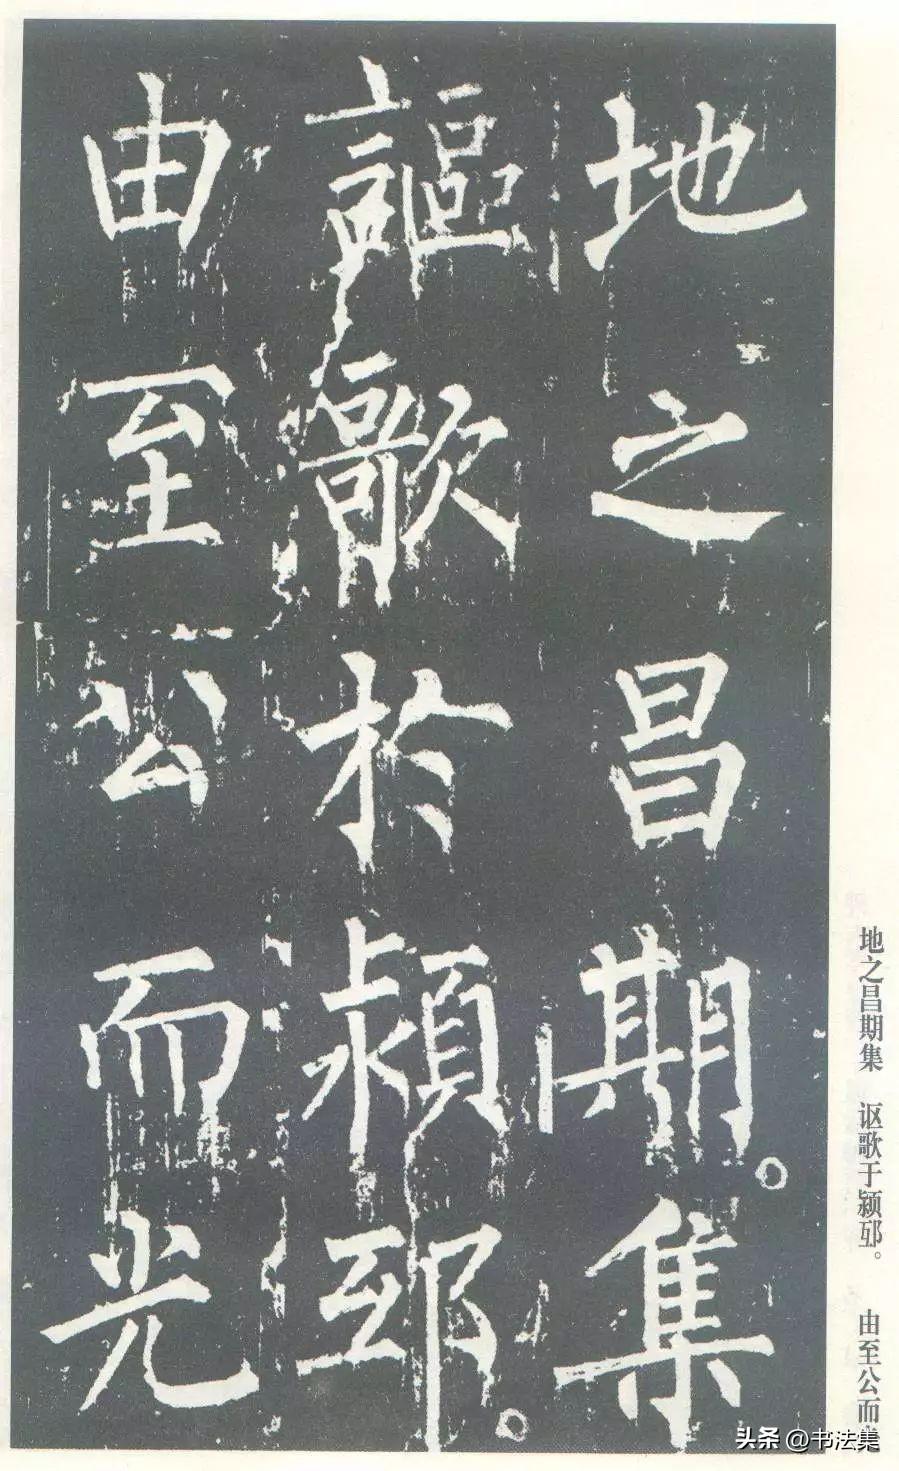 地之昌期。集
謳歌於潁邳。
由至公而光
地之昌期集　讴歌于颍邳。　由至公而光
头条 @书法集